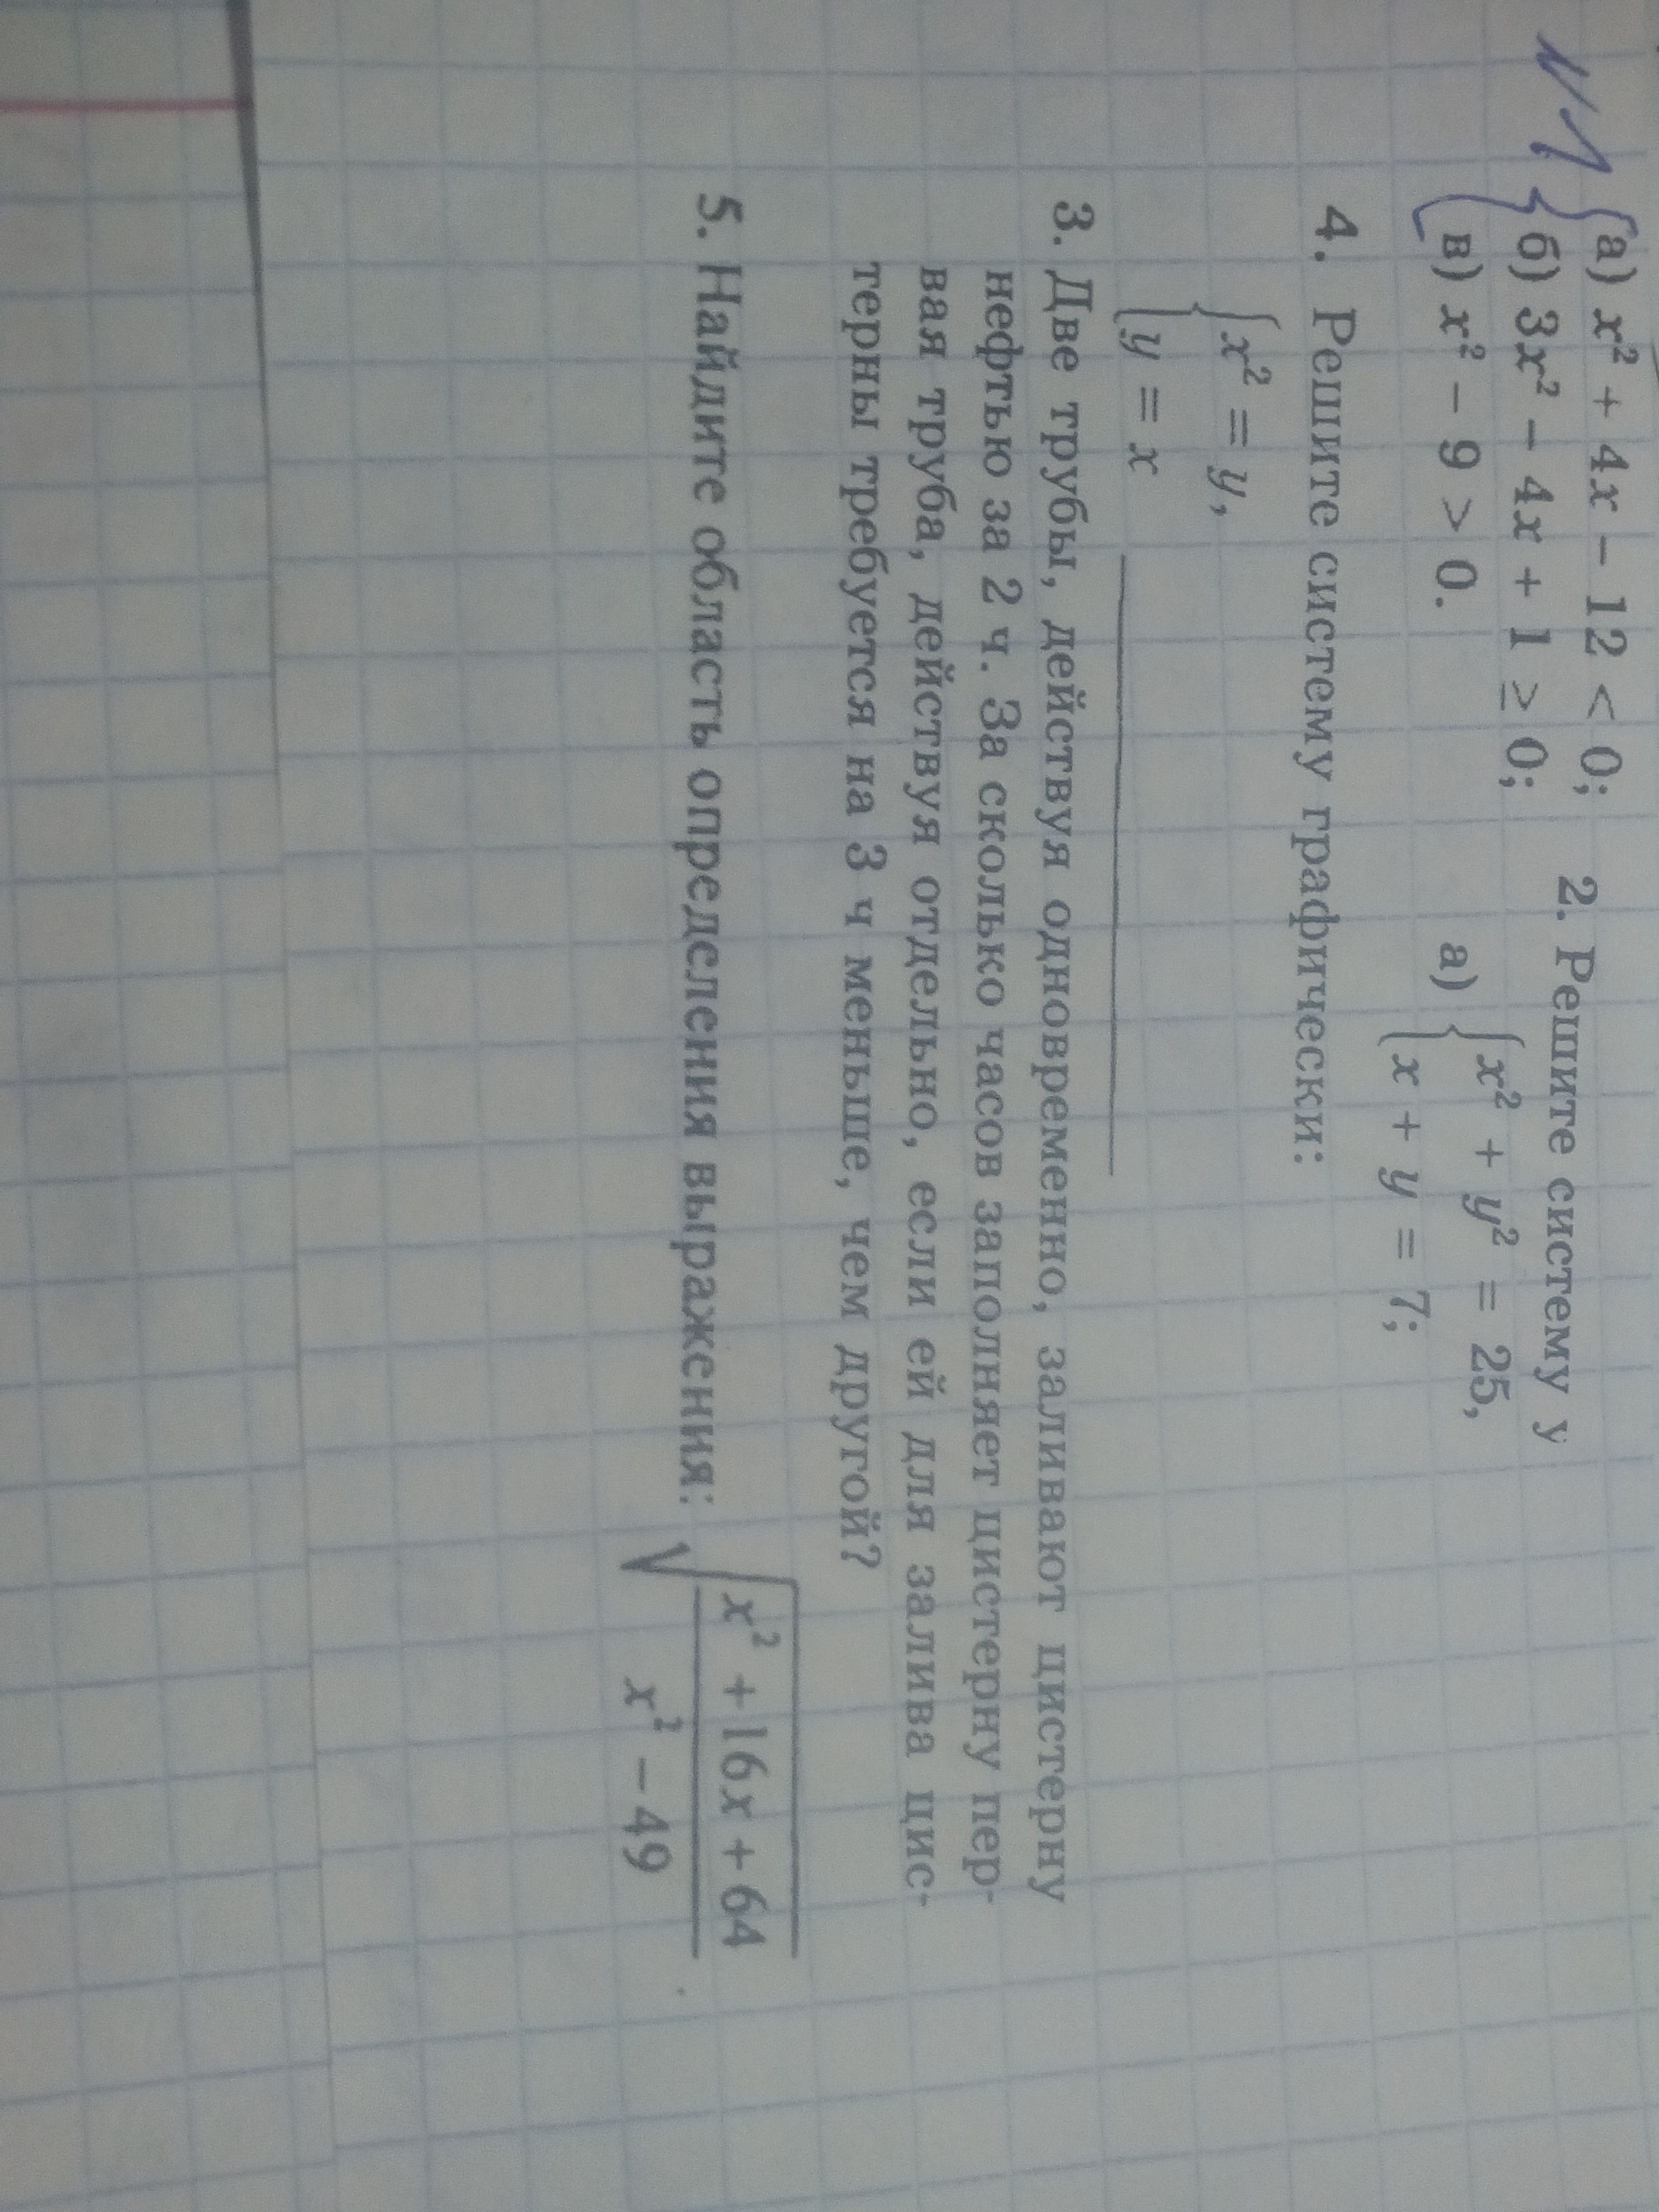 №1
а) x² + 4x − 12 < 0;
б) 3x² − 4x + 1 ≥ 0;
в) x² − 9 > 0.
2. Решите систему у
а) { x² + y² = 25,
x + y = 7;
4. Решите систему графически:
{ x² = y,
y = x
3. Две трубы, действуя одновременно, заливают цистерну
нефтью за 2 ч. За сколько часов заполняет цистерну пер-
вая труба, действуя отдельно, если ей для залива цис-
терны требуется на 3 ч меньше, чем другой?
5. Найдите область определения выражения: √((x² + 16x + 64)/(x² − 49))